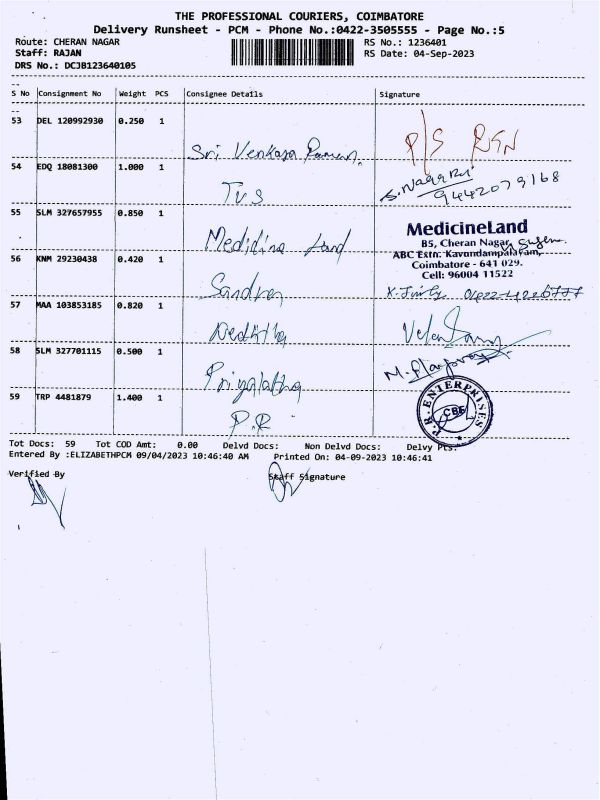 THE PROFESSIONAL COURIERS, COIMBATORE
Delivery Runsheet - PCM - Phone No.:0422-3505555 - Page No.:5
Route: CHERAN NAGAR RS No.: 1236401
Staff: RAJAN RS Date: 04-Sep-2023
DRS No.: DCJB123640105
S No Consignment No Weight PCS Consignee Details Signature
53 DEL 120992930 0.250 1 P/S RTN
Sri Venkasa
54 EDQ 18081300 1.000 1 S.Nagaraj
TVS 9442079168
55 SLM 327657955 0.850 1 MedicineLand
Medicine Land B5, Cheran Nagar,
ABC Extn. Kavundampalayam,
56 KNM 29230438 0.420 1 Coimbatore - 641 029.
Cell: 96004 11522
57 MAA 103853185 0.820 1
58 SLM 327701115 0.500 1
Priyalatha
59 TRP 4481879 1.400 1 P.R. ENTERPRISES
P.R CBE
Tot Docs: 59 Tot COD Amt: 0.00 Delvd Docs: Non Delvd Docs: Delvy Pts:
Entered By :ELIZABETHPCM 09/04/2023 10:46:40 AM Printed On: 04-09-2023 10:46:41
Verified By Staff Signature